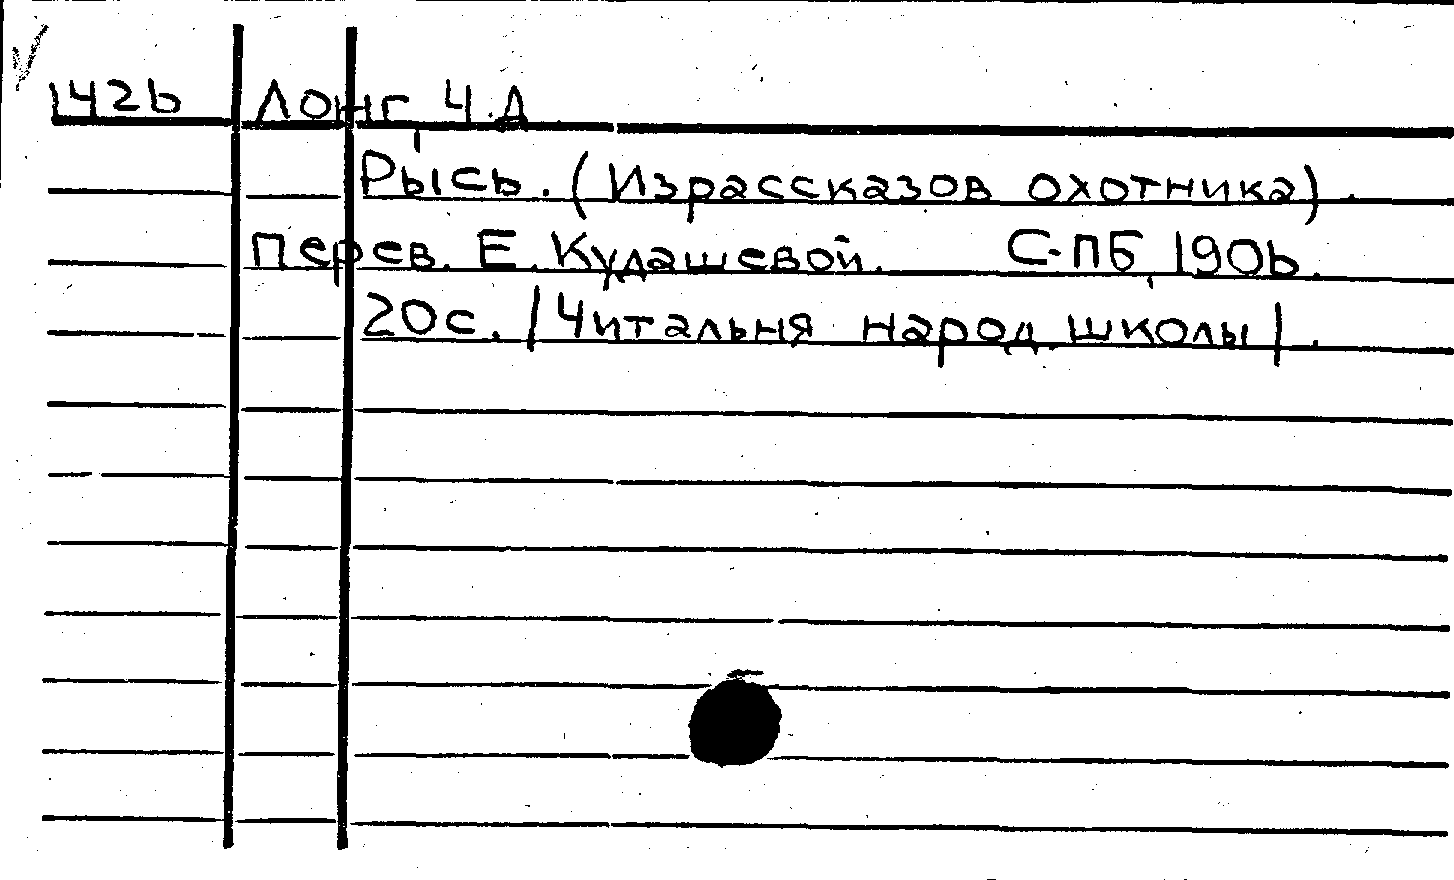 1426 Лонг, Ч.Д
Рысь. (Из рассказов охотника).
Перев. Е. Кудашевой. С-ПБ, 1906.
20с. /Читальня народ. школы/.